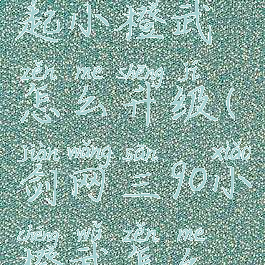 起小橙武
zěn me shēng jí
怎么升级(
jiàn wǎng sān xiǎo
剑网三90小
chéng wǔ zěn me
橙武怎么